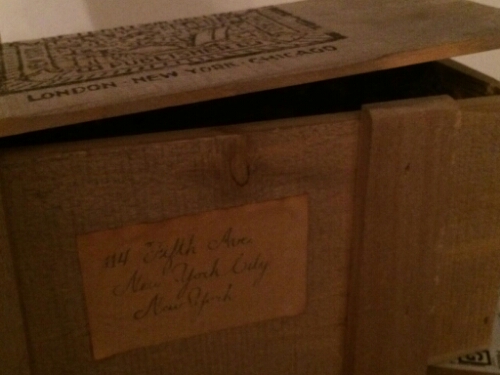 LONDON NEW YORK CHICAGO
114 Fifth Ave.
New York City
New York